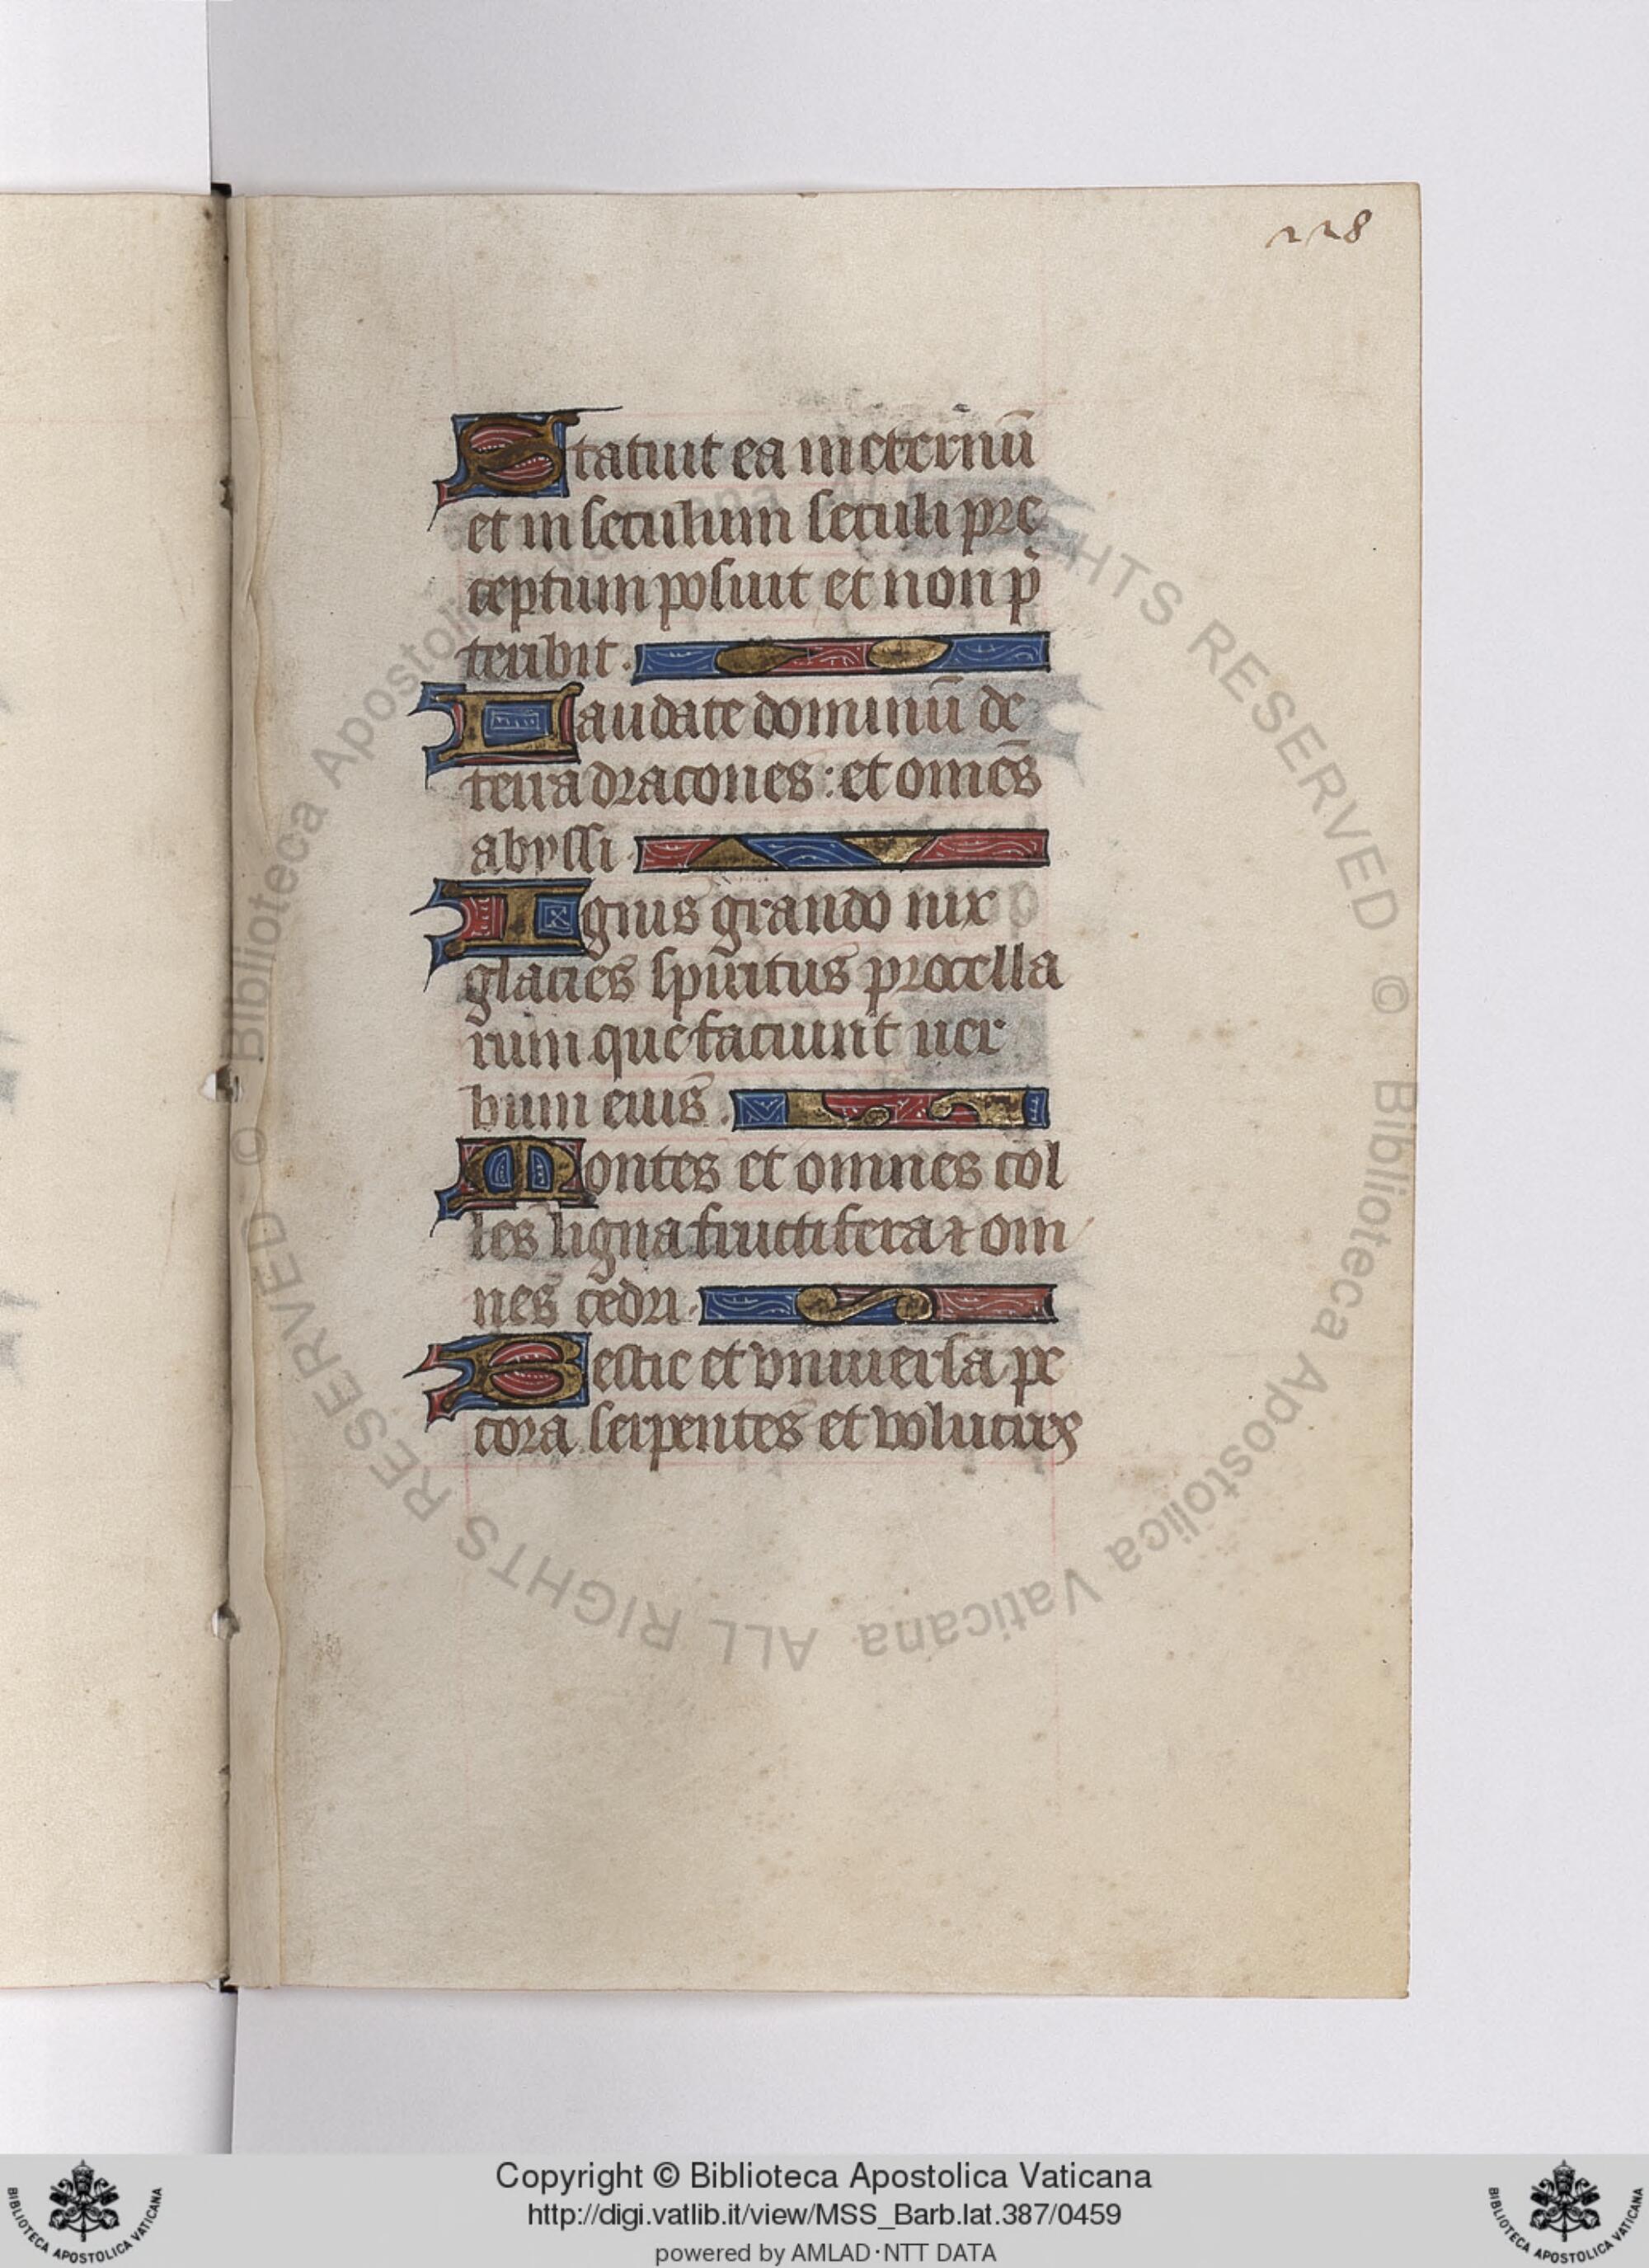 228
Statuit ea in eternū
et in seculum seculi pre
ceptum posuit et non p̄
teribit.
Laudate dominū de
terra dracones: et omēs
abyssi
Ignis grando nix
glacies spiritus procella
rum que faciunt uer
bum eius.
Montes et omnes col
les ligna fructifera ⁊ om
nes cedri.
Bestie et vniuersa pe
cora serpentes et volucres
© Biblioteca Apostolica Vaticana ALL RIGHTS RESERVED
© Biblioteca Apostolica Vaticana ALL RIGHTS RESERVED
Copyright © Biblioteca Apostolica Vaticana
http://digi.vatlib.it/view/MSS_Barb.lat.387/0459
powered by AMLAD·NTT DATA
BIBLIOTECA APOSTOLICA VATICANA
BIBLIOTECA APOSTOLICA VATICANA